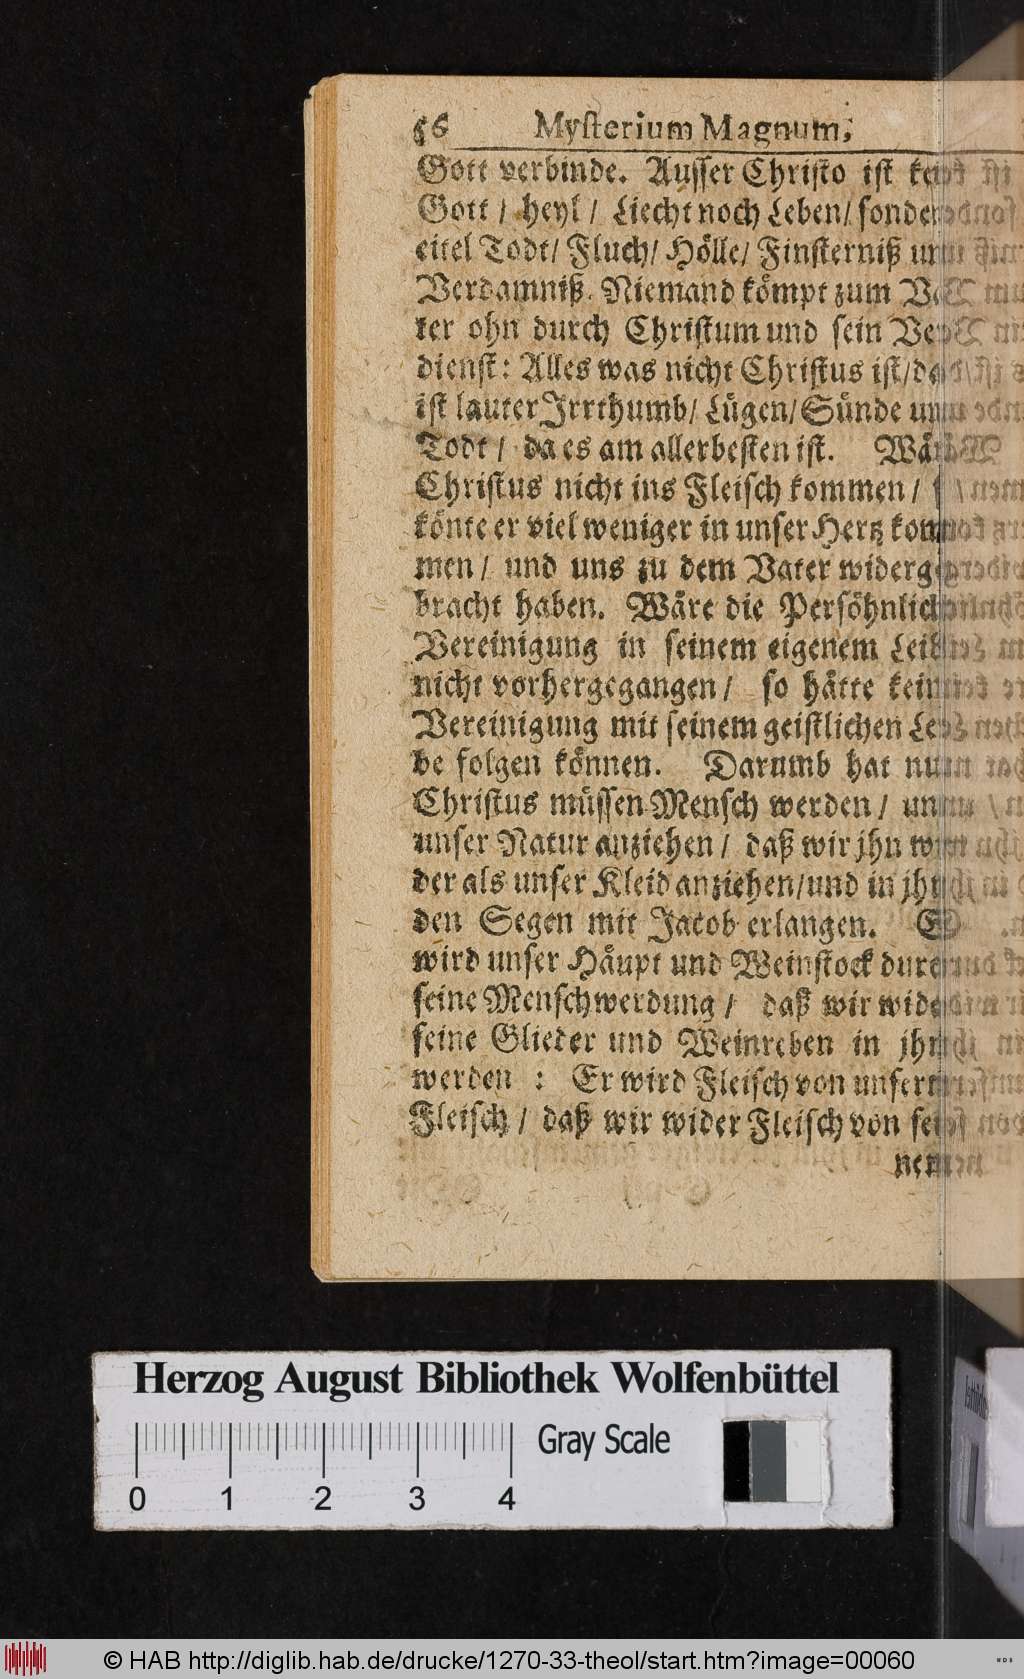 56 Mysterium Magnum,
Gott verbinde. Ausser Christo ist kein
Gott / heyl / Liecht noch Leben / sondern
eitel Todt / Fluch / Hölle / Finsterniß und
Verdamniß. Niemand kömpt zum Va-
ter ohn durch Christum und sein Ver-
dienst: Alles was nicht Christus ist / das
ist lauter Irrthumb / Lügen / Sünde und
Todt / da es am allerbesten ist. Wäre
Christus nicht ins Fleisch kommen /
könte er viel weniger in unser Hertz kom-
men / und uns zu dem Vater widerge-
bracht haben. Wäre die Persöhnliche
Vereinigung in seinem eigenem Leibe
nicht vorhergegangen / so hätte keine
Vereinigung mit seinem geistlichen Lei-
be folgen können. Darumb hat nun
Christus müssen Mensch werden / und
unser Natur anziehen / daß wir jhn wi-
der als unser Kleid anziehen / und in jhm
den Segen mit Jacob erlangen. Er
wird unser Häupt und Weinstock durch
seine Menschwerdung / daß wir wider
seine Glieder und Weinreben in jhm
werden : Er wird Fleisch von unserm
Fleisch / daß wir wider Fleisch von sei-
nem
Herzog August Bibliothek Wolfenbüttel
Gray Scale
0 1 2 3 4
© HAB http://diglib.hab.de/drucke/1270-33-theol/start.htm?image=00060